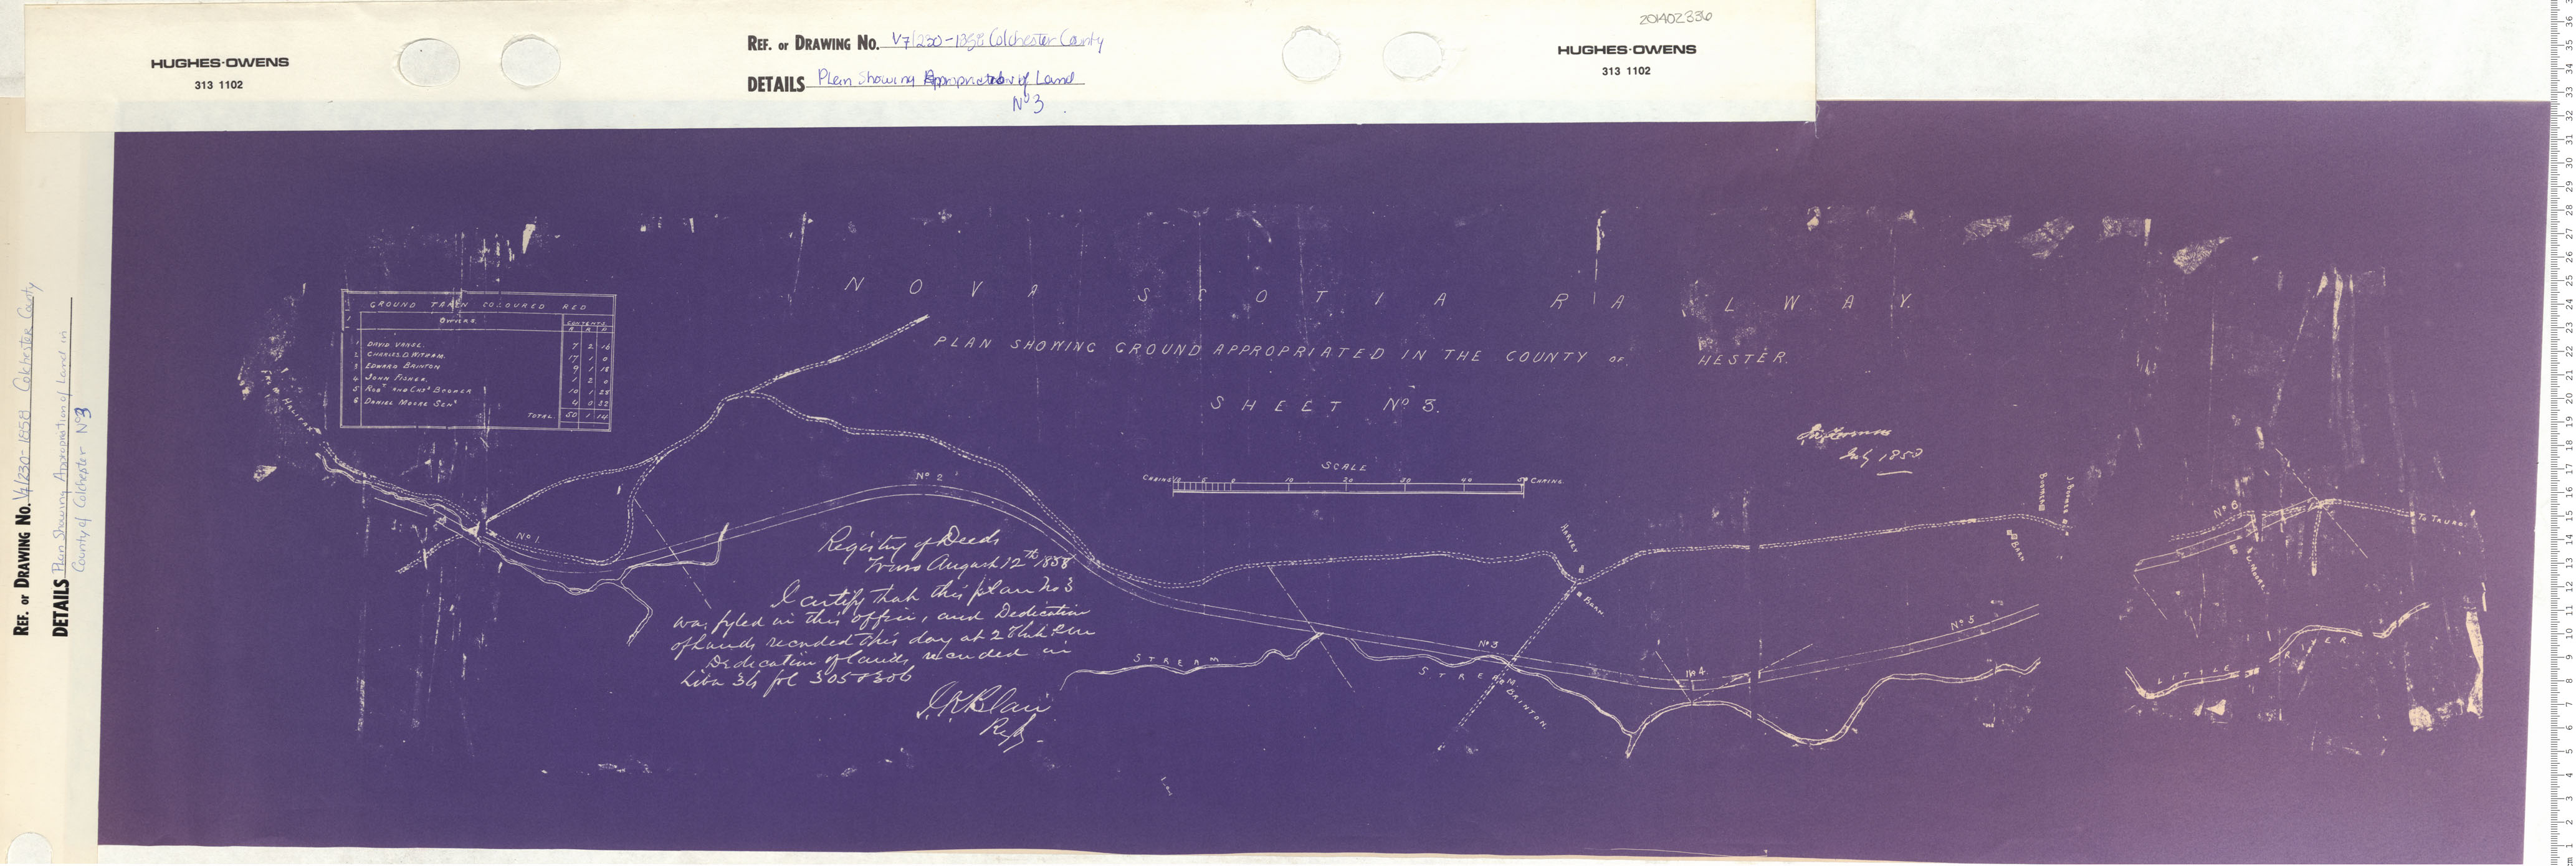 201402336
HUGHES·OWENS
313 1102
REF. OR DRAWING NO. V7/230-1858 Colchester County
DETAILS Plan Showing Appropriation of Land
Nº 3
HUGHES·OWENS
313 1102
REF. OR DRAWING NO. V7/230-1858 Colchester County
DETAILS Plan Showing Appropriation of Land in
County of Colchester - Nº 3
NOVA SCOTIA RAILWAY.
PLAN SHOWING GROUND APPROPRIATED IN THE COUNTY OF HESTER.
SHEET Nº 3.
GROUND TAKEN COLOURED RED
OWNERS. CONTENTS.
A R P
1 DAVID VANCE. 7 2 16
2 CHARLES D. WITHAM. 17 1 0
3 EDWARD BRINTON 9 1 18
4 JOHN FISHER. 1 2 0
5 ROBT AND CHAS BOOMER 10 1 28
6 DANIEL MOORE SENR 4 0 22
TOTAL. 50 1 14
July 1858
SCALE
CHAINS 10 5 0 10 20 30 40 50 CHAINS
HALIFAX
Nº 1
Nº 2
Registry of Deeds
Truro August 12th 1858
I certify that this plan No 3
was fyled in this office, and Dedication
of lands recorded this day at 2
Dedication of lands recorded in
Liber 34 fol 305 & 306
J.K. Blair
Regr
STREAM
HARVEY
BARN
Nº 3
STREAM
BRINTON.
Nº 4
Nº 5
BARN
Nº 6
TO TRURO
D. MOORE
LITTLE IVER